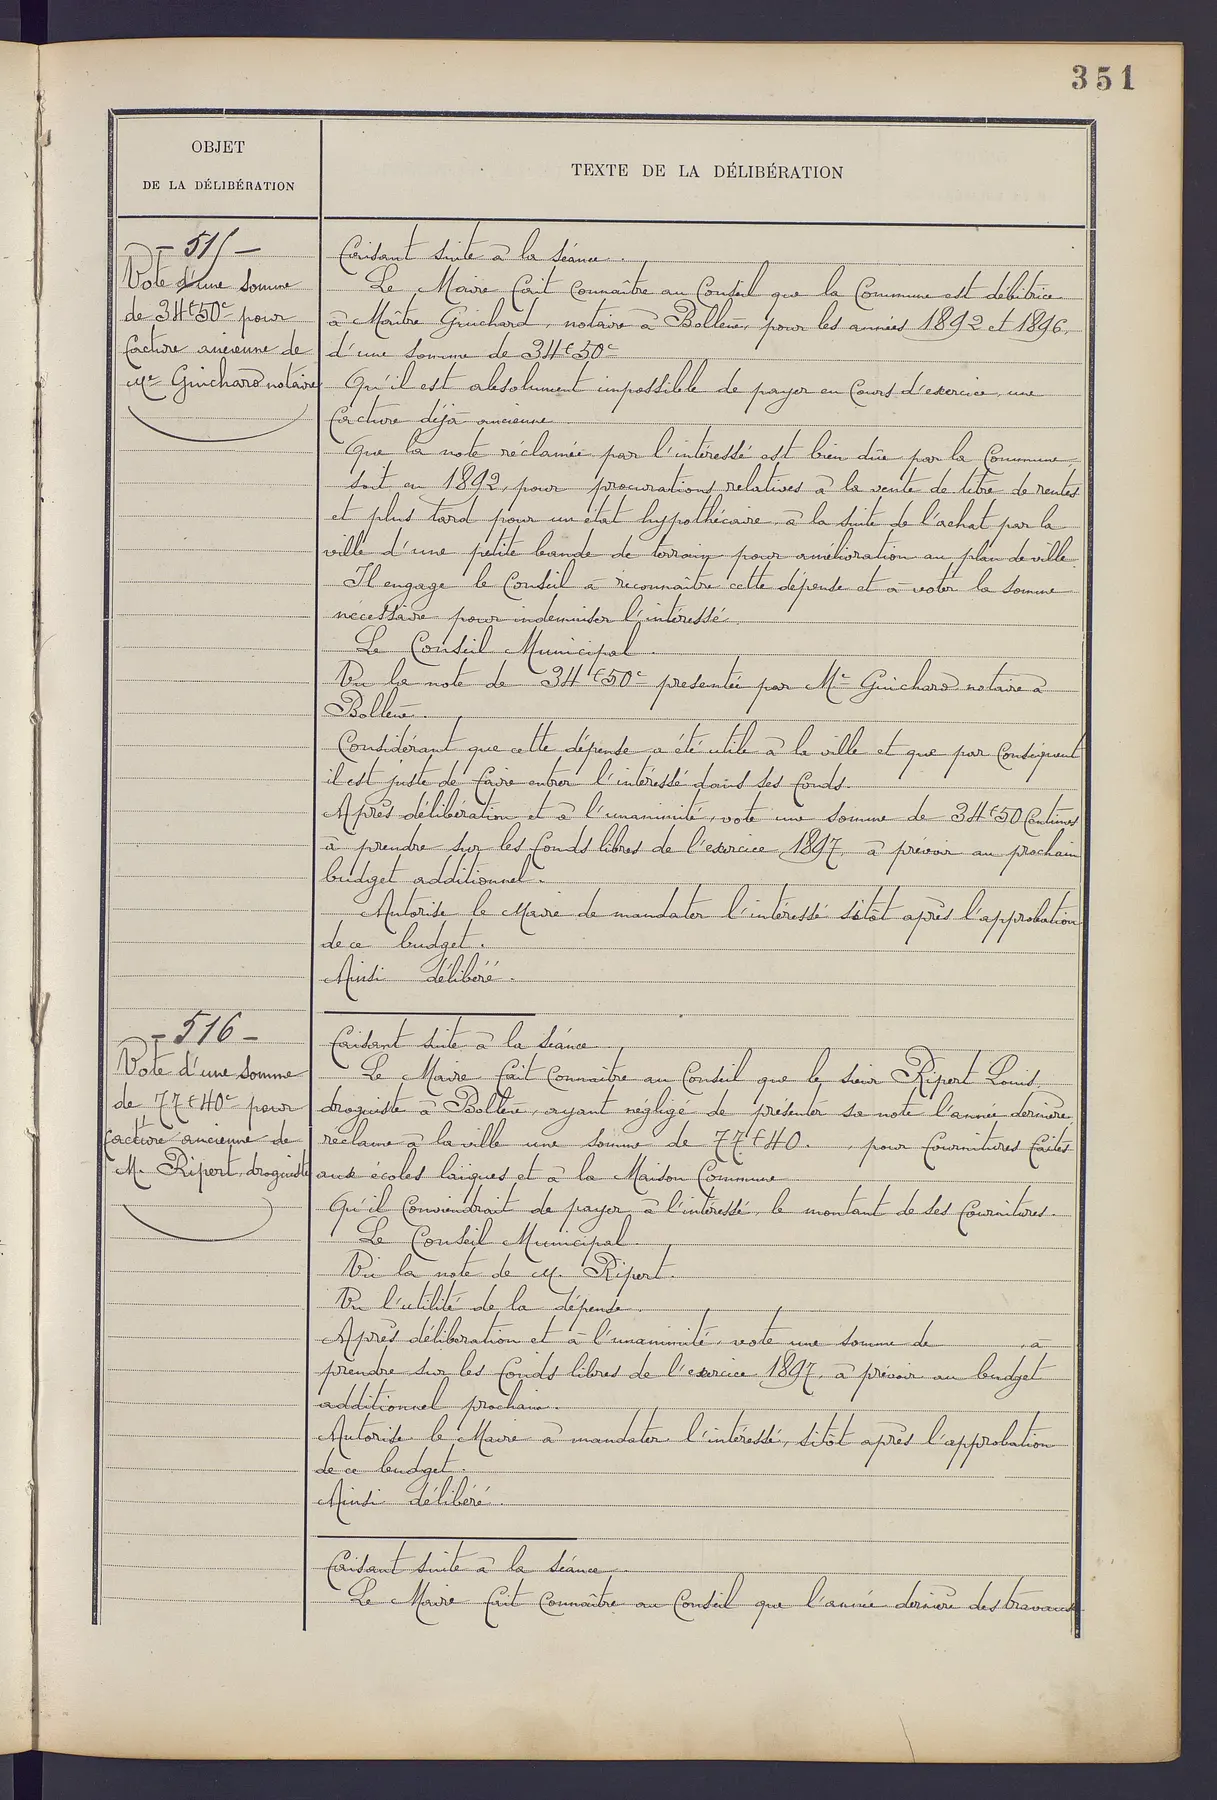 351
OBJET
DE LA DÉLIBÉRATION
TEXTE DE LA DÉLIBÉRATION
- 515 -
Vote d'une somme
de 34f50c pour
facture ancienne de
Me Guichard notaire
Faisant suite à la séance.
Le Maire fait connaître au Conseil que la Commune est débitrice
à Maître Guichard, notaire à Bollène, pour les années 1892 et 1896,
d'une somme de 34f50c
Qu'il est absolument impossible de payer en cours d'exercice, une
facture déjà ancienne.
Que la note réclamée par l'intéressé est bien dûe par la Commune,
soit en 1892, pour procurations relatives à la vente de titre de rentes
et plus tard pour un état hypothécaire, à la suite de l'achat par la
ville d'une petite bande de terrain pour amélioration au plan de ville.
Il engage le Conseil à reconnaître cette dépense et à voter la somme
nécessaire pour indemniser l'intéressé.
Le Conseil Municipal.
Vu la note de 34f50c presentée par Me Guichard notaire à
Bollène.
Considérant que cette dépense a été utile à la ville et que par conséquent
il est juste de faire entrer l'intéressé dans ses fonds.
Après délibération et à l'unanimité, vote une somme de 34f50 Centimes
à prendre sur les fonds libres de l'exercice 1897, à prévoir au prochain
budget additionnel.
Autorise le Maire de mandater l'intéressé sitôt après l'approbation
de ce budget.
Ainsi délibéré.
- 516 -
Vote d'une somme
de 77f40c pour
facture ancienne de
M. Ripert, droguiste
Faisant suite à la séance.
Le Maire fait connaître au Conseil que le sieur Ripert Louis,
droguiste à Bollène, ayant négligé de présenter sa note l'année dernière,
réclame à la ville une somme de 77f40. , pour fournitures faites
aux écoles laïques et à la Maison Commune
Qu'il conviendrait de payer à l'intéressé, le montant de ses fournitures.
Le Conseil Municipal.
Vu la note de M. Ripert.
Vu l'utilité de la dépense.
Après délibération et à l'unanimité, vote une somme de , à
prendre sur les fonds libres de l'exercice 1897, à prévoir au budget
additionnel prochain.
Autorise le Maire à mandater l'intéressé, sitôt après l'approbation
de ce budget.
Ainsi délibéré.
Faisant suite à la séance.
Le Maire fait connaître au Conseil que l'année dernière des travaux